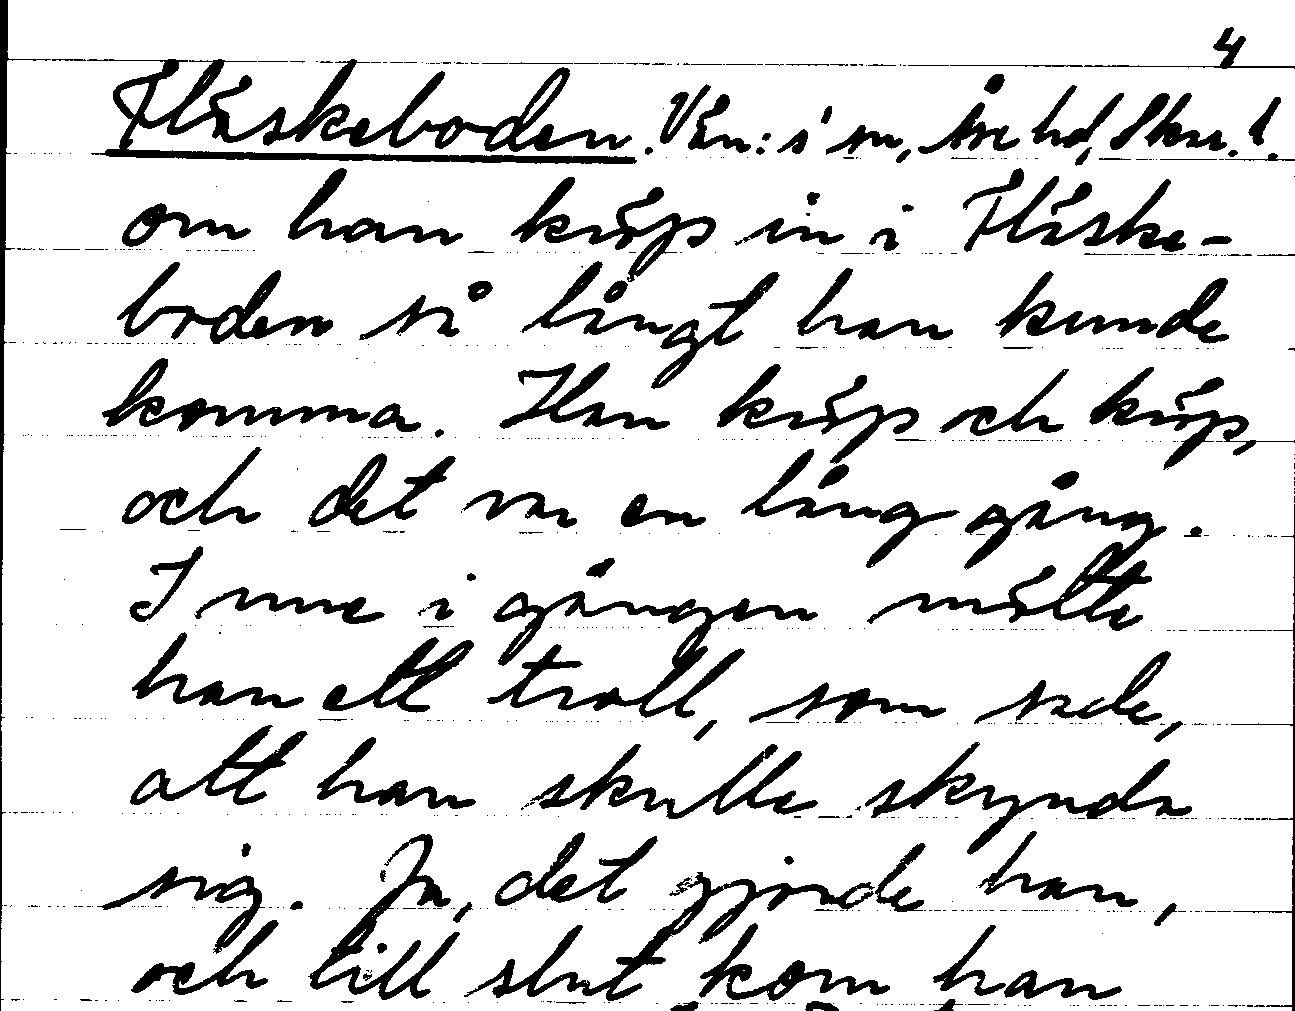 4
Fläskeboden. Vån: s' sn, Åre hd, Skar. l.
om han kröp in i Fläske-
boden så långt han kunde
komma. Han kröp och kröp,
och det var en lång gång.
Inne i gången mötte
han ett troll, som sade,
att han skulle skynda
sig. Ja, det gjorde han,
och till slut kom han